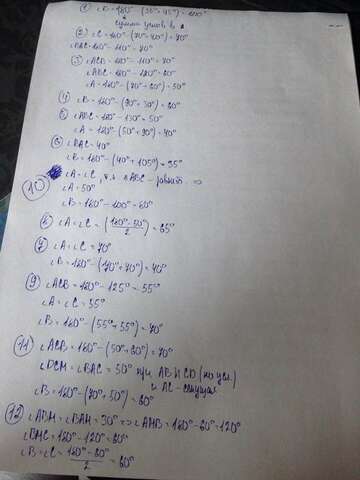 ① ∠B=180°-(35°+45°)=100°
сумма углов в Δ
② ∠C=180°-(70°+40°)=70°
∠BAC=180°-110°=70°
③ ∠ACB=180°-110°=70°
∠ABC=180°-120°=60°
∠A=180°-(70°+60°)=50°
④ ∠B=180°-(90°+30°)=60°
⑤ ∠ABC=180°-130°=50°
∠A=180°-(50°+90°)=40°
⑥ ∠BAC=40°
∠B=180°-(40°+105°)=35°
⑩ ∠A=∠C, т.к. ΔABC-равноб. ⇒
∠A=50°
∠B=180°-100°=80°
⑧ ∠A=∠C=(180°-50°/2)=65°
⑦ ∠A=∠C=70°
∠B=180°-(70°+70°)=40°
⑨ ∠ACB=180°-125°=55°
∠A=∠C=55°
∠B=180°-(55°+55°)=70°
⑪ ∠ACB=180°-(50°+60°)=70°
∠DCM=∠BAC=50° при AB и CD (по усл.)
и AC-секущая
∠B=180°-(70°+50°)=60°
⑫ ∠ABM=∠BAM=30°⇒∠AMB=180°-60°=120°
∠BMC=180°-120°=60°
∠B=∠C=180°-60°/2=60°